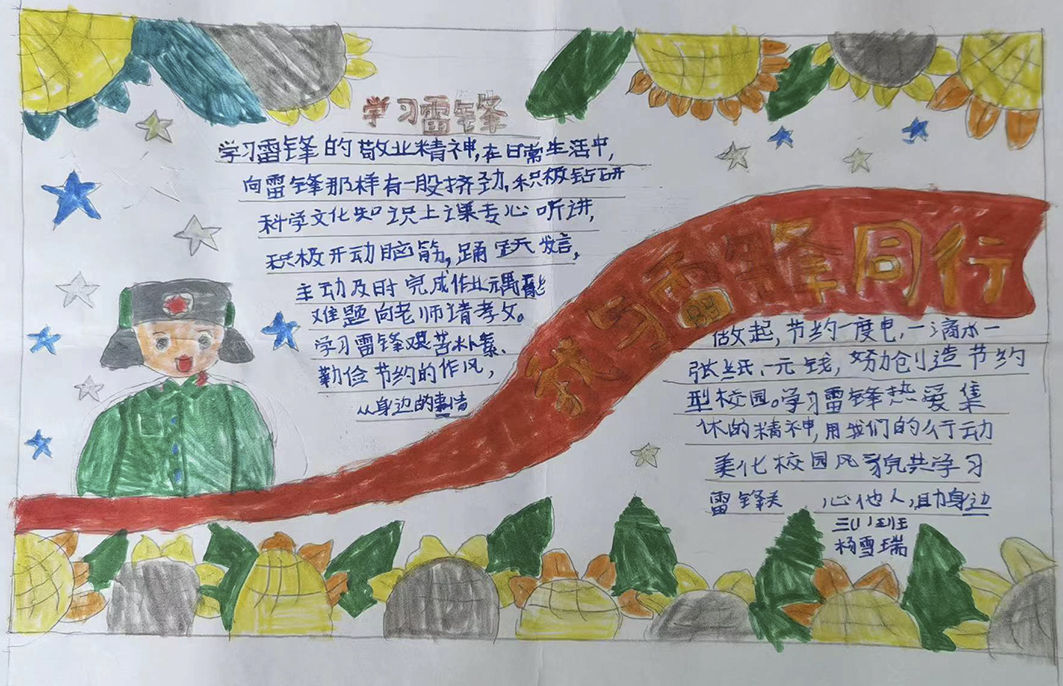 学习雷锋
学习雷锋的敬业精神,在日常生活中,
向雷锋那样有一股挤劲,积极钻研
科学文化知识上课专心听讲,
积极开动脑筋,踊跃发言,
主动及时完成作业遇到
难题向老师请考文。
学习雷锋艰苦朴素、
勤俭节约的作风,
从身边的事情
我与雷锋同行
做起,节约一度电,一滴水一
张纸、一元钱,努力创造节约
型校园。学习雷锋热爱集
休的精神,用我们的行动
美化校园风貌共学习
雷锋关 心他人,助身边
三(1)班
杨雪瑞